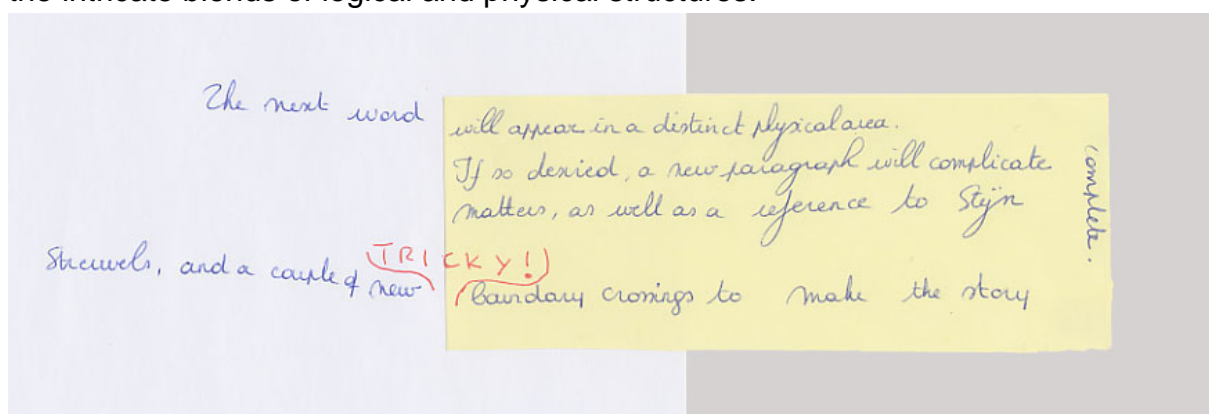 the intricate blends of logical and physical structures.
The next word will appear in a distinct physical area.
If so desired, a new paragraph will complicate
matters, as well as a reference to Stijn
Streuvels, and a couple of new boundary crossings to make the story
complete.
TRICKY!